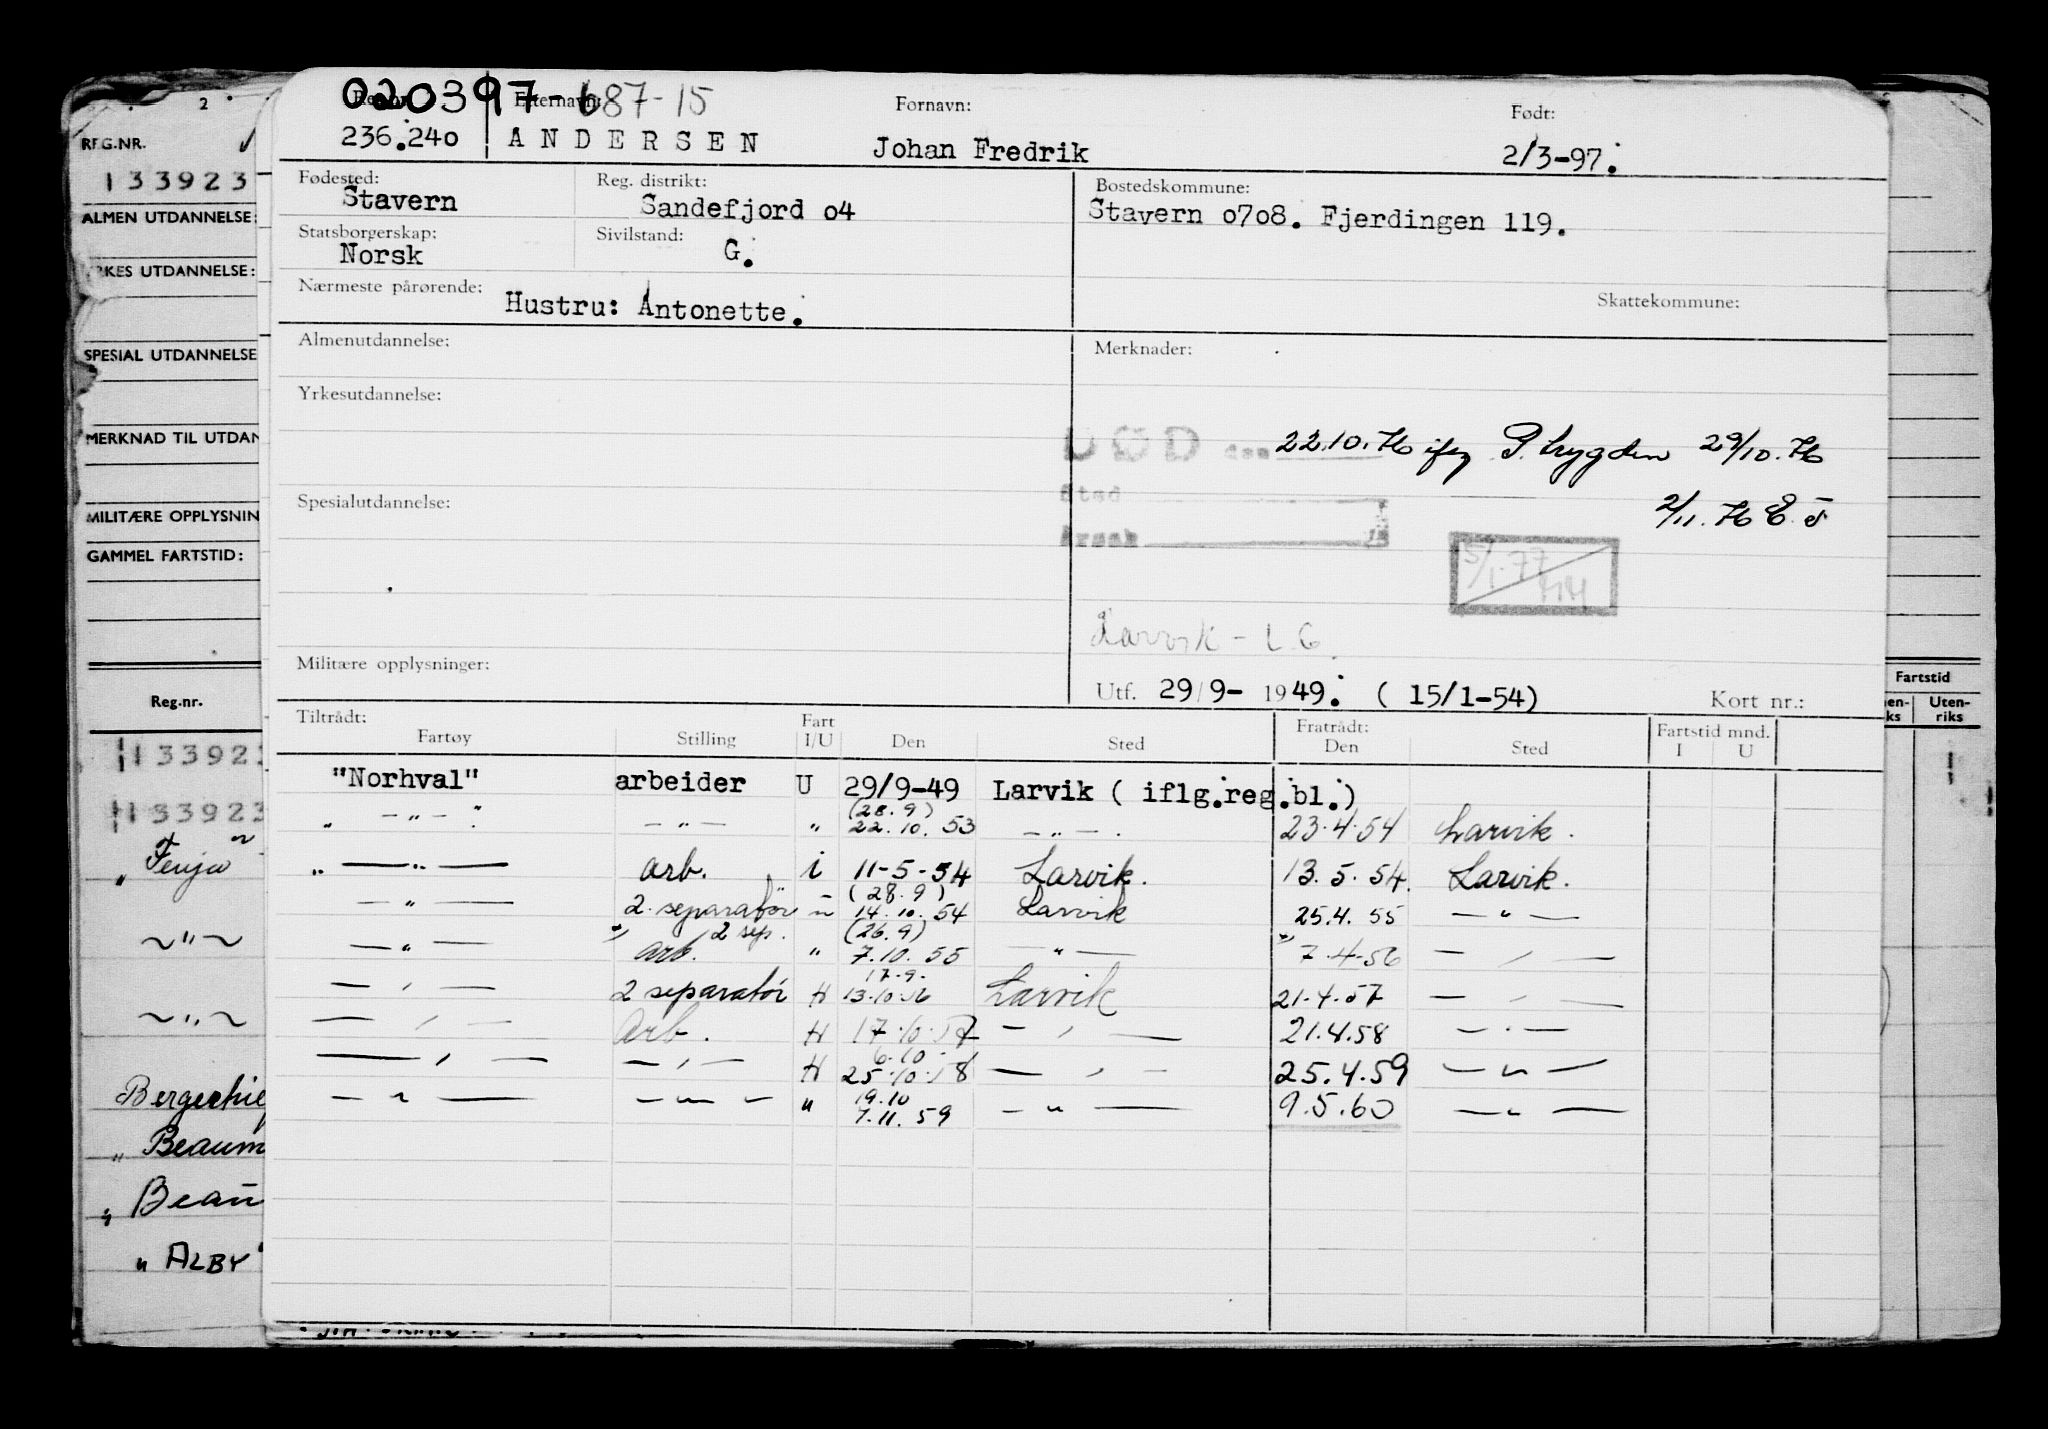 020397-687-15
Regnr. Etternavn: Fornavn: Født:
236.240 ANDERSEN Johan Fredrik 2/3-97.
Fødested: Reg. distrikt: Bostedskommune:
Stavern Sandefjord o4 Stavern o7o8. Fjerdingen 119.
Statsborgerskap: Sivilstand:
Norsk G.
Nærmeste pårørende: Skattekommune:
Hustru: Antonette.
Almenutdannelse: Merknader:
Yrkesutdannelse:
DØD den 22.10.76 ifg P.trygden 29/10.76
Sted
Spesialutdannelse: 2/11.76
Årsak
5/1-77
Larvik - L G.
Militære opplysninger:
Utf. 29/9- 1949. ( 15/1-54) Kort nr.:
Tiltrådt: Fart Fratrådt: Fartstid mnd.
Fartøy Stilling I/U Den Sted Den Sted I U
"Norhval" arbeider U 29/9-49 Larvik ( iflg.reg.bl.)
(28.9)
„ — " — " — " — " 22.10.53 — " — . 23.4.54 Larvik.
„ — " — arb. i 11-5-54 Larvik. 13.5.54. Larvik.
(28.9)
— " — 2. separatør u 14.10.54 Larvik 25.4.55 — " —
2 sep. (26.9)
— " — arb. " 7.10.55 — " — 7.4-56 — " —
17.9.
— " — 2 separatør H 13.10.56 Larvik 21.4.57 — " —
— " — Arb. H 17.10.57 — " — 21.4.58 — " —
6.10.
— " — — " — H 25.10.58 — " — 25.4.59 — " —
19.10
— " — — " — " 7.11.59 — " — 9.5.60 — " —
2
REG.NR.
133923
ALMEN UTDANNELSE:
RKES UTDANNELSE:
SPESIAL UTDANNELSE
MERKNAD TIL UTDAN
MILITÆRE OPPLYSNIN
GAMMEL FARTSTID:
Reg.nr.
133923
133923
„ Fenja
~ " ~
~ " ~
Bergechie
„ Beaum
„ Beau
„ ALBY"
Fartstid
en-
ks
Uten-
riks